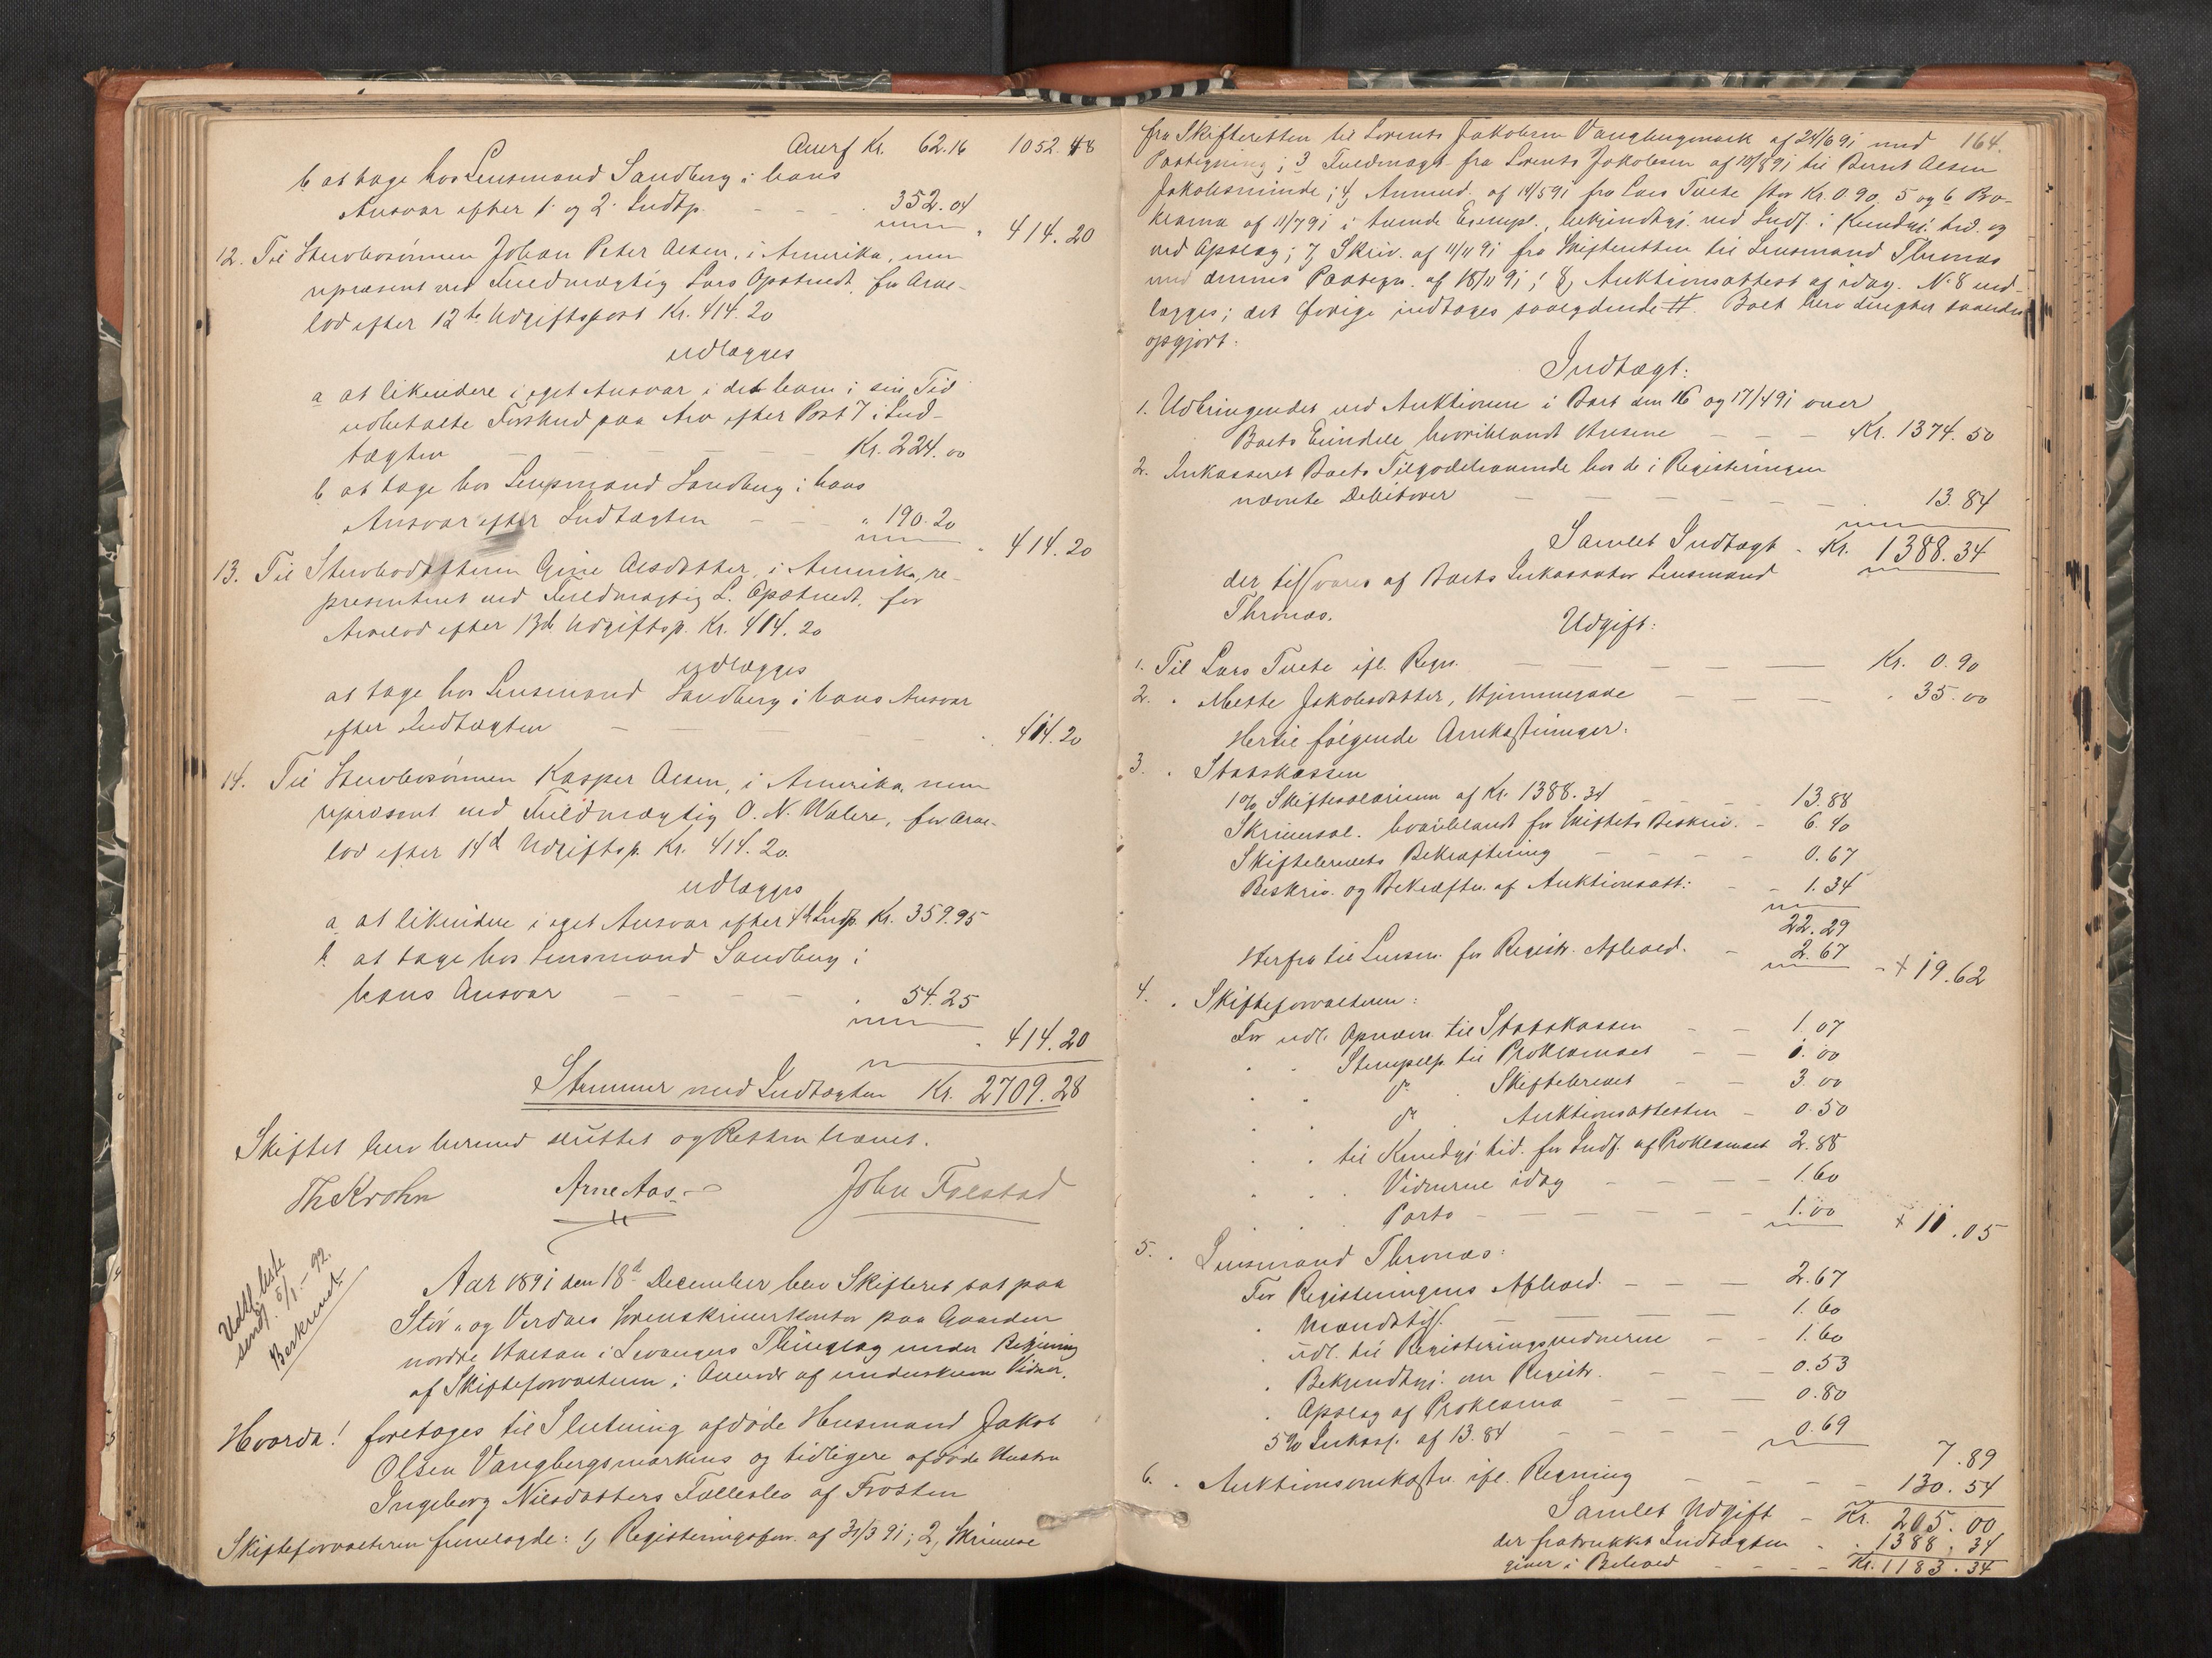 Overf Kr. 62.16 1052.48
b at tage hos Lensmand Sandberg i hans
Ansvar efter 1. og 2. Indtp. - - - 352.04
" 414.20
12. Til Stervbosønnen Johan Peter Olsen, i Amerika, nu
repræsent. ved Fuldmægtig Lars Opstuedt, for Arve-
lod efter 12te Udgiftspost Kr. 414.20
udlægges
a at likvidere i eget Ansvar i det ham i sin Tid
udbetalte Forskud paa Arv efter Post 7 i Ind-
tægten - - - - - Kr. 224.00
b at tage hos Lensmand Sandberg i hans
Ansvar efter Indtægten - - - " 190.20
" 414.20
13. Til Stervbodatteren Gine Olsdatter, i Amerika, re-
presenteret ved Fuldmægtig L. Opstuedt, for
Arvelod efter 13de Udgiftsp. Kr. 414.20
udlægges
at tage hos Lensmand Sandberg i hans Ansvar
efter Indtægten - - - - " 414.20
14. Til Stervbosønnen Kasper Olsen, i Amerika, nu
repræsent. ved Fuldmægtig O. N. Walere, for Arve-
lod efter 14d Udgiftsp. Kr. 414.20.
udlægges
a at likvidere i eget Ansvar efter 4d Indtp. Kr. 359.95
b. at tage hos Lensmand Sandberg i
hans Ansvar - - - - " 54.25
" 414.20
Stemmer med Indtægten Kr. 2709.28
Skiftet blev hermed sluttet og Retten hævet.
Th Krohn Arne Aas John Folstad
Udkl. liste
sendt 5/1-92.
Beskrevet
Aar 1891 den 18d December blev Skifteret sat paa
Stør- og Værdals Sorenskriverkontor paa Gaarden
nordre Halsan i Levangers Thinglag under Betjening
af Skifteforvalteren i Overvær af underskrevne Vidner.
Hvorda! foretages til Slutning afdøde Husmand Jakob
Olsen Vangbergsmarkens og tidligere afdøde Hustru
Ingeborg Nilsdatters Fællesbo af Frosten
Skifteforvalteren fremlagde: 1, Registeringsforr. af 31/3 91; 2, Skrivelse
164.
fra Skifteretten til Lorents Jakobsen Vangbergmark af 24/6 91 med
Paategning; 3 Fuldmagt fra Lorents Jakobsen af 10/8 91 til Bernt Olsen
Jakobsminde; 4, Anmeld. af 14/5 91 fra Lars Tuete stor Kr. 0.90, 5 og 6 Pro-
klama af 11/7 91 i tvende Exempl., bekjendtgj. ved Indf. i Kundgj. tid. og
ved Opslag; 7, Skriv. af 11/11 91 fra Skifteretten til Lensmand Thronæs
med dennes Paategn. af 18/11 91; 8, Auktionsattest af idag. No 8 ved-
lægges; det øvrige indtages saalydende #. Boet blev derefter saaledes
opgjort:
Indtægt:
1. Udbringendet ved Auktionen i Boet den 16 og 17/4 91 over
Boets Eiendele hvoriblandt Husene - - - Kr. 1374.50
2. Inkasseret Boets Tilgodehavende hos de i Registeringen
nævnte Debitorer - - - - - - " 13.84
Samlet Indtægt - Kr. 1388.34
der tilsvares af Boets Inkassator Lensmand
Thronæs.
Udgift:
1. Til Lars Tuete ifl. Regn. - - - - - Kr. 0.90
2. " Mette Jakobsdatter, Hjemmegave - - - " 35.00
Hertil følgende Omkostninger:
3. " Statskassen
1% Skiftesalarium af Kr. 1388.34 - - - 13.88
Skriversal. hvoriblandt for Skiftets Beskriv. - 6.40
Skiftebrevets Bekræftning - - - - 0.67
Beskriv. og Bekræftn. af Auktionsatt: - - 1.34
22.29
Herfra til Lensm. for Registr. Afhold. - 2.67
- + 19.62
4. " Skifteforvalteren:
For udl. Opnævn. til Statskassen - - 1.07
" " Stempelp. til Proklamaet - - 1.00
" " do " Skiftebrevet - - 3.00
" " do " Auktionsattesten - 0.50
" " til Kundgj. tid. for Indf. af Proklamaet 2.88
" " " Vidnerne idag - - - - 1.60
" " " Porto - - - - - - 1.00
+ 11.05
5. " Lensmand Thronæs:
For Registeringens Afhold. - - - 2.67
" Mandstils. - - - 1.60
" udl. til Registeringsvidnerne - - 1.60
" Bekjendtgj. om Registr. - - - 0.53
" Opslag af Proklama - - - 0.80
5% Inkass. af 13.84 - - - - 0.69
7.89
6. " Auktionsomkostn. ifl. Regning - - - - 130.54
Samlet Udgift - Kr. 205.00
der fratrukket Indtægten - " 1388.34
giver i Behold - - - - Kr. 1183.34